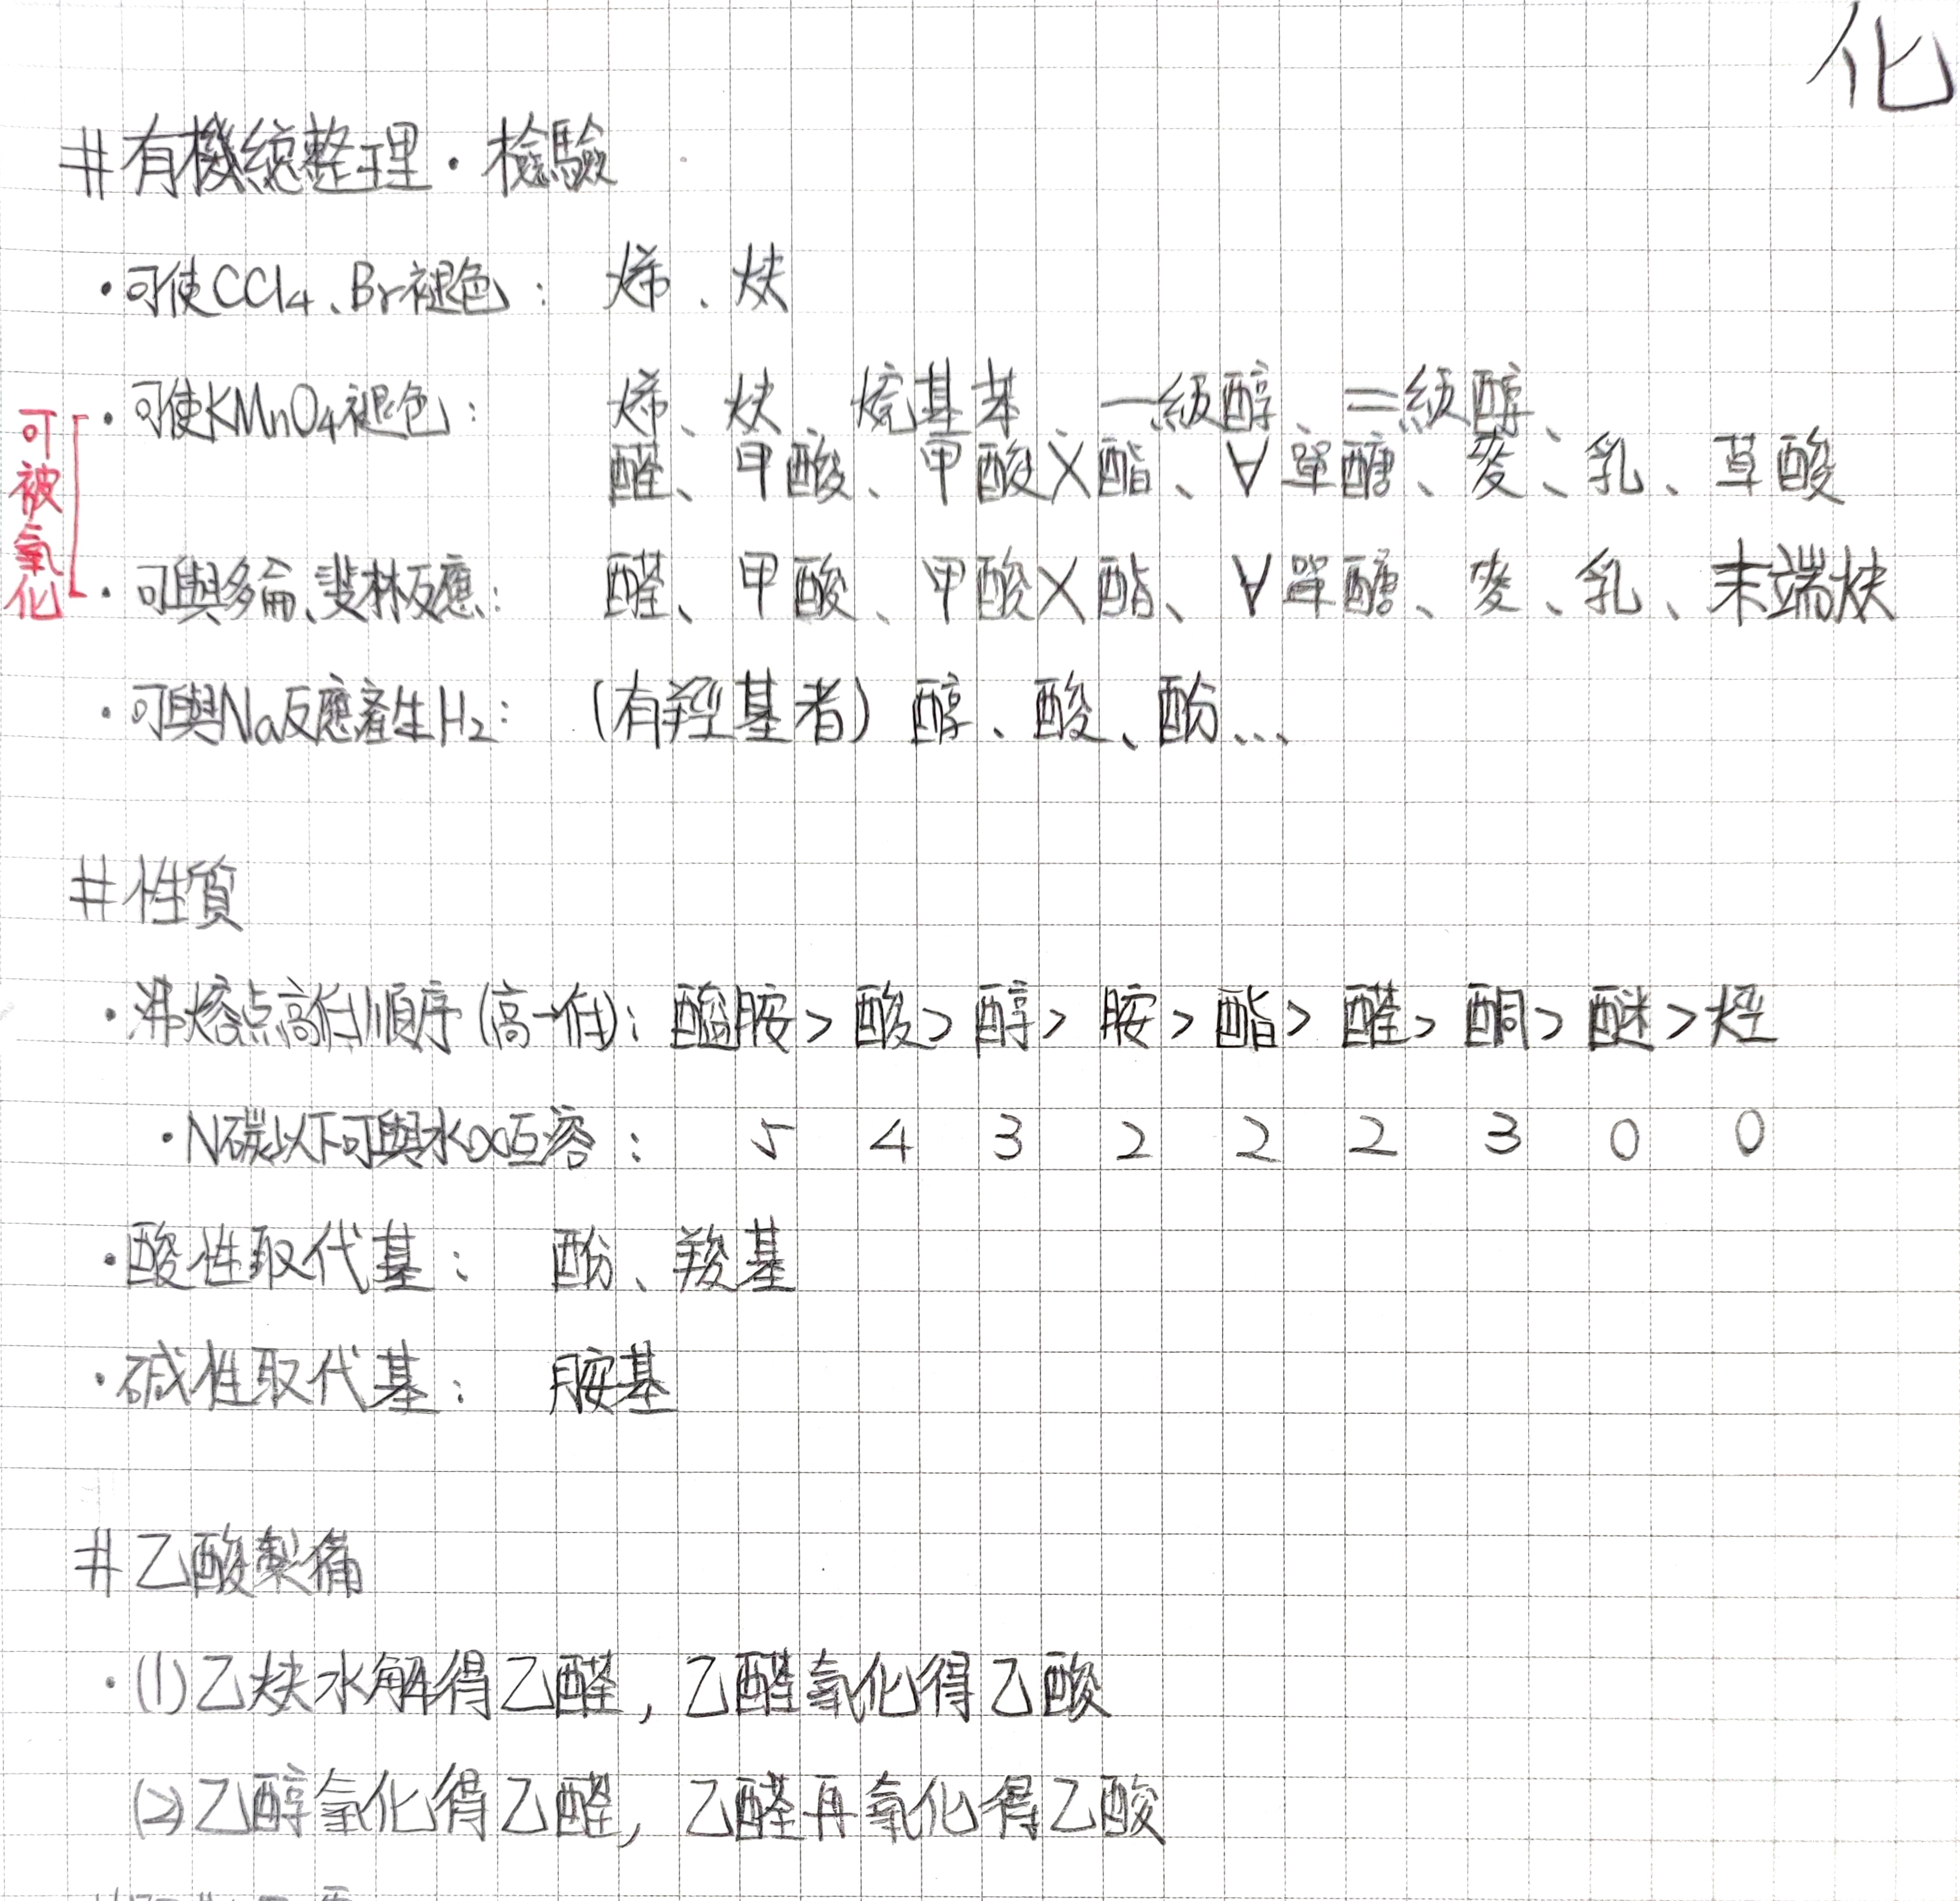 化
# 有機總整理・檢驗
・可使CCl4、Br褪色: 烯、炔
可被氧化
・可使KMnO4褪色: 烯、炔、烷基苯、一級醇、二級醇、
醛、甲酸、甲酸X酯、∀單醣、麥、乳、草酸
・可與多侖、斐林反應: 醛、甲酸、甲酸X酯、∀單醣、麥、乳、末端炔
・可與Na反應產生H2: (有羥基者) 醇、酸、酚...
# 性質
・沸熔点高低順序 (高→低): 醯胺 > 酸 > 醇 > 胺 > 酯 > 醛 > 酮 > 醚 > 烴
・N碳以下可與水∞互溶: 5 4 3 2 2 2 3 0 0
・酸性取代基: 酚、羧基
・碱性取代基: 胺基
# 乙酸製備
・(1) 乙炔水解得乙醛, 乙醛氧化得乙酸
(2) 乙醇氧化得乙醛, 乙醛再氧化得乙酸